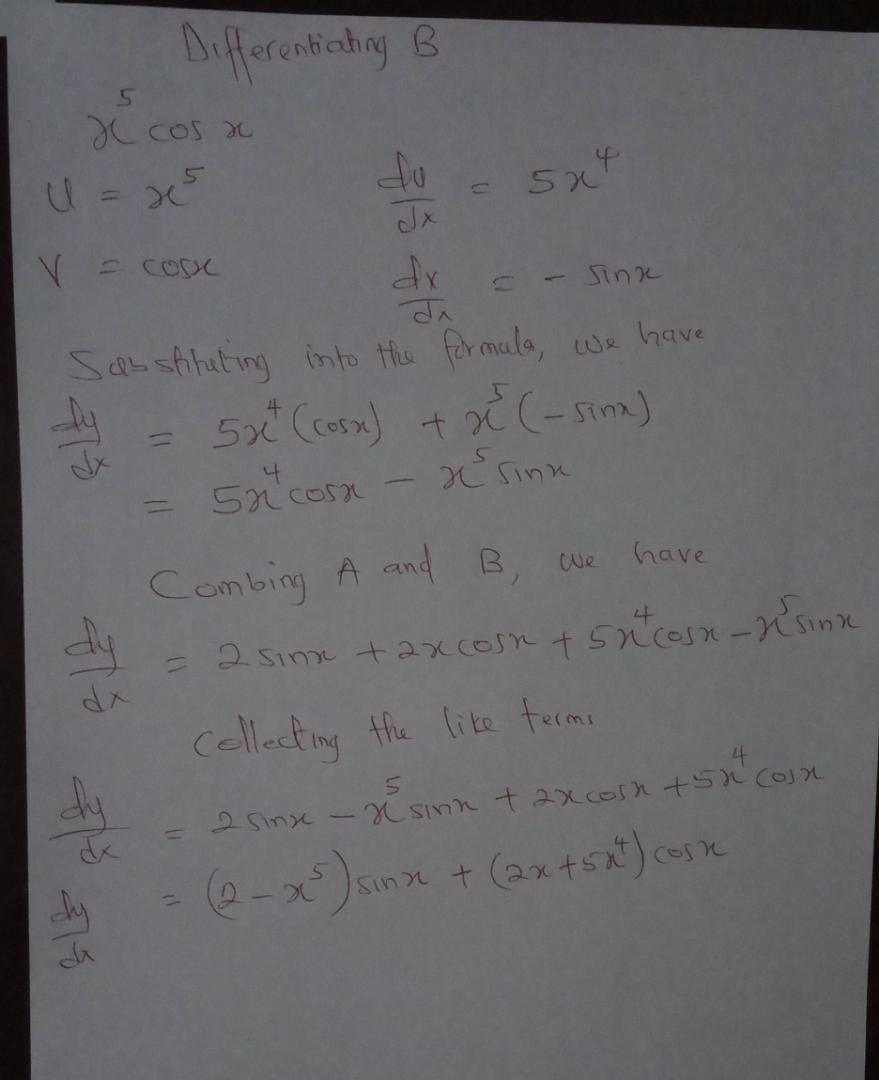 Differentiating B
x⁵ cos x
U = x⁵ du/dx = 5x⁴
V = cosx dv/dx = - sinx
Substituting into the formula, we have
dy/dx = 5x⁴(cosx) + x⁵(-sinx)
= 5x⁴cosx - x⁵sinx
Combing A and B, we have
dy/dx = 2sinx + 2xcosx + 5x⁴cosx - x⁵sinx
Collecting the like terms
dy/dx = 2sinx - x⁵sinx + 2xcosx + 5x⁴cosx
dy/dx = (2-x⁵)sinx + (2x+5x⁴)cosx